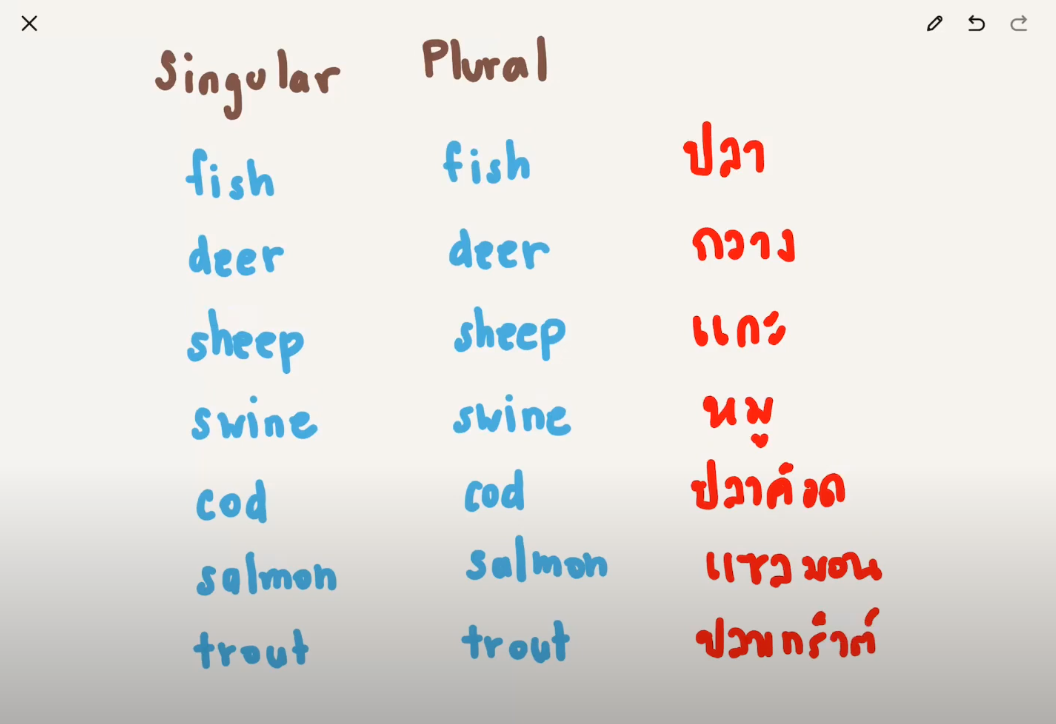 Singular Plural
fish fish ปลา
deer deer กวาง
sheep sheep แกะ
swine swine หมู
cod cod ปลาค็อด
salmon salmon แซลมอน
trout trout